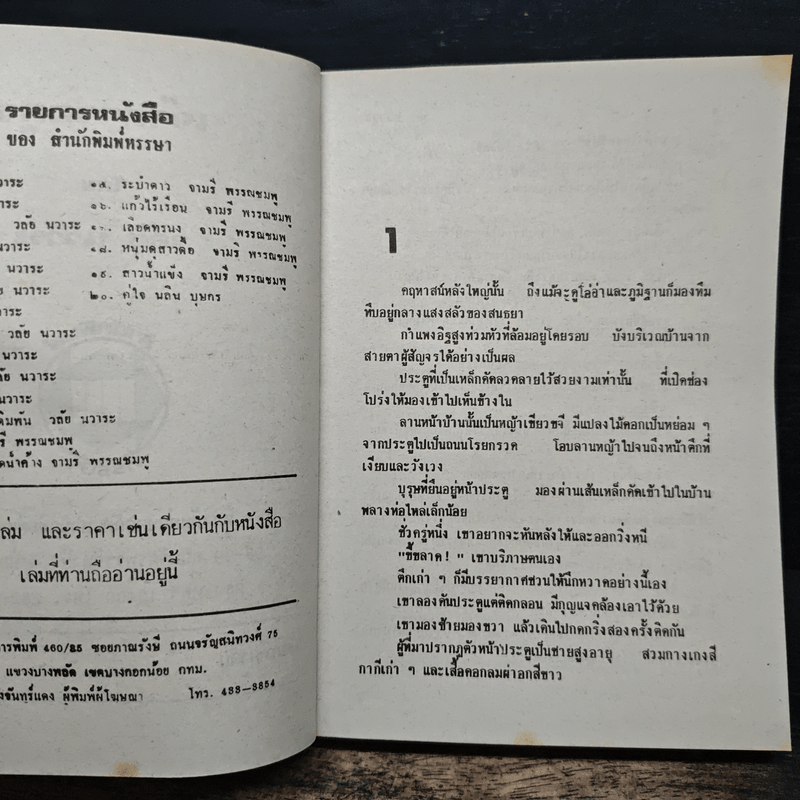 รายการหนังสือ
ของ สำนักพิมพ์หรรษา
วาระ
วลัย นวาระ
นวาระ
นวาระ
วลัย นวาระ
นวาระ
วลัย นวาระ
นวาระ
วลัย นวาระ
พรรณชมพู
จามรี พรรณชมพู
๑๕. ระบำดาว จามรี พรรณชมพู
๑๖. แก้วไร้เรือน จามรี พรรณชมพู
๑๗. เลือดทรนง จามรี พรรณชมพู
๑๘. หนุ่มดุสาวดื้อ จามรี พรรณชมพู
๑๙. สาวน้ำแข็ง จามรี พรรณชมพู
๒๐. คู่ใจ นลิน บุษกร
เล่ม และราคาเช่นเดียวกันกับหนังสือ
เล่มที่ท่านถืออ่านอยู่นี้
การพิมพ์ 460/85 ซอยภาณรังษี ถนนจรัญสนิทวงศ์ 75
แขวงบางพลัด เขตบางกอกน้อย กทม.
จันทร์แดง ผู้พิมพ์ผู้โฆษณา โทร. 433-3854
1
คฤหาสน์หลังใหญ่นั้น ถึงแม้จะดูโอ่อ่าและภูมิฐานก็มองทึม
ทึบอยู่กลางแสงสลัวของสนธยา
กำแพงอิฐสูงท่วมหัวที่ล้อมอยู่โดยรอบ บังบริเวณบ้านจาก
สายตาผู้สัญจรได้อย่างเป็นผล
ประตูที่เป็นเหล็กดัดลวดลายไว้สวยงามเท่านั้น ที่เปิดช่อง
โปร่งให้มองเข้าไปเห็นข้างใน
ลานหน้าบ้านนั้นเป็นหญ้าเขียวขจี มีแปลงไม้ดอกเป็นหย่อม ๆ
จากประตูไปเป็นถนนโรยกรวด โอบลานหญ้าไปจนถึงหน้าตึกที่
เงียบและวังเวง
บุรุษที่ยืนอยู่หน้าประตู มองผ่านเส้นเหล็กดัดเข้าไปในบ้าน
พลางห่อไหล่เล็กน้อย
ชั่วครู่หนึ่ง เขาอยากจะหันหลังให้และออกวิ่งหนี
"ขี้ขลาด ! " เขาบริภาษตนเอง
ตึกเก่า ๆ ก็มีบรรยากาศชวนให้นึกหวาดอย่างนี้เอง
เขาลองดันประตูแต่ติดกลอน มีกุญแจคล้องเอาไว้ด้วย
เขามองซ้ายมองขวา แล้วเดินไปกดกริ่งสองครั้งติดกัน
ผู้ที่มาปรากฏตัวหน้าประตูเป็นชายสูงอายุ สวมกางเกงสี
กากีเก่า ๆ และเสื้อคอกลมผ่าอกสีขาว